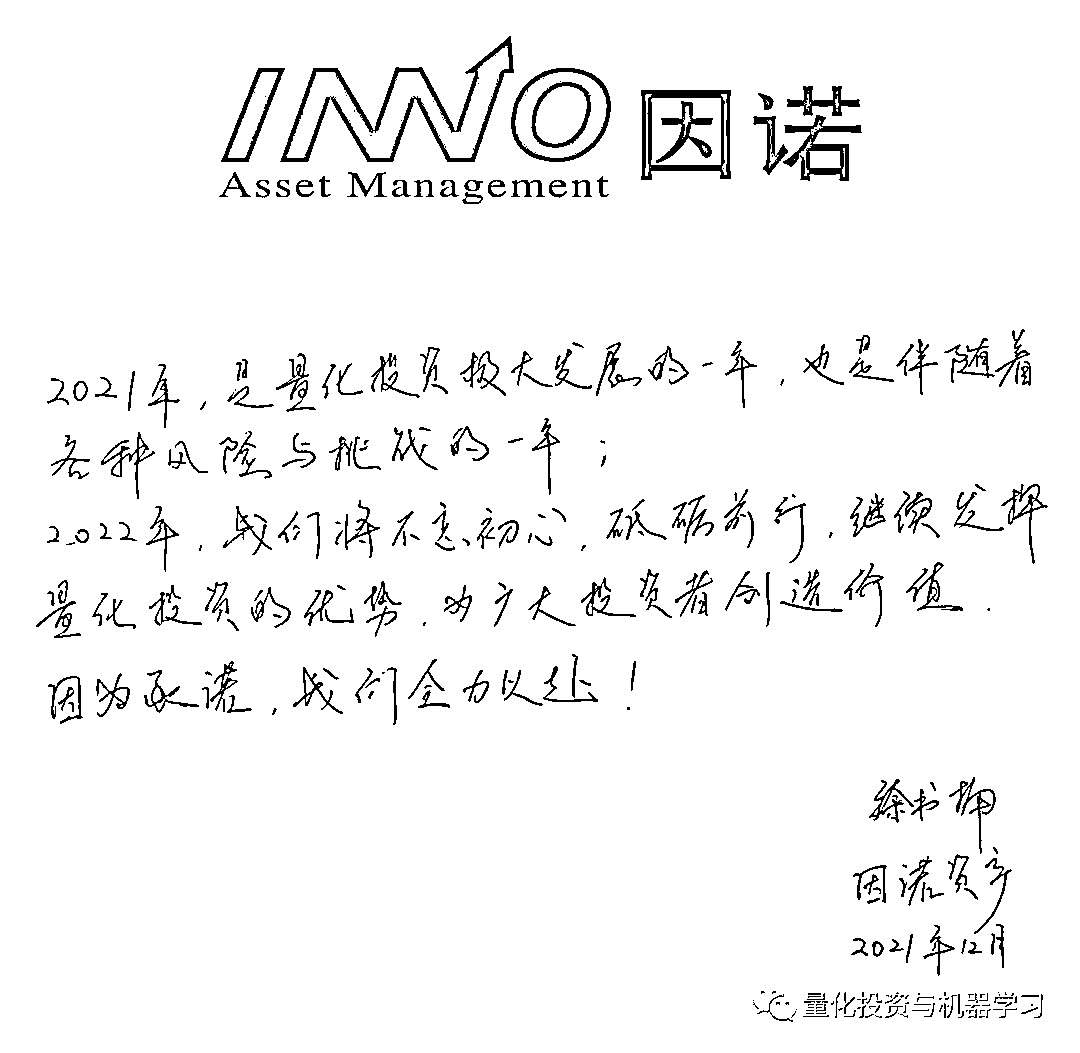 INNO 因诺
Asset Management
2021年，是量化投资极大发展的一年，也是伴随着
各种风险与挑战的一年；
2022年，我们将不忘初心，砥砺前行，继续发挥
量化投资的优势，为广大投资者创造价值.
因为承诺，我们全力以赴！
徐书楠
因诺资产
2021年12月
量化投资与机器学习